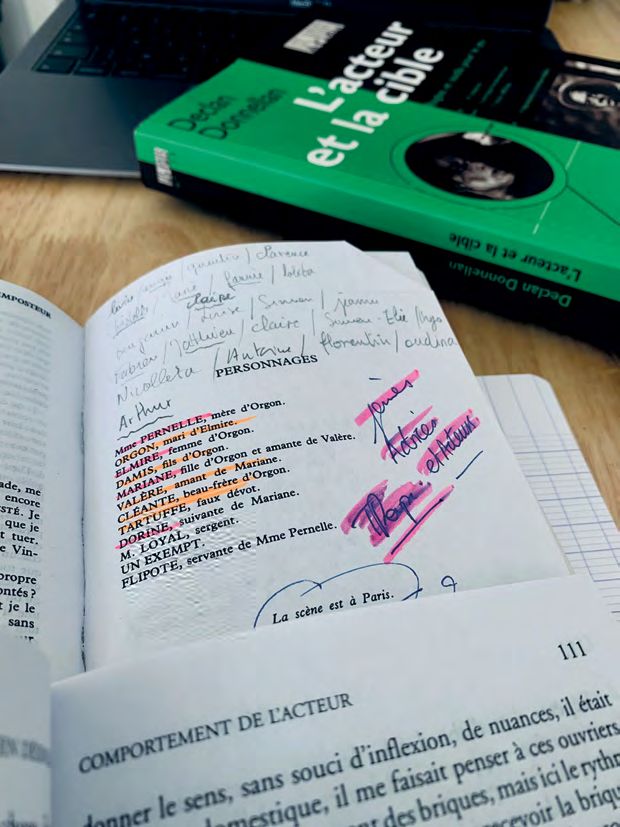 Declan
Donnellan
L'acteur
et la cible
L'acteur et la cible
Declan Donnellan
IMPOSTEUR
quentin / Clarence
Fannie / lolita
claire
Louise / Simon /
Fabien / Matthieu / claire / Simon-Elie / Hugo
Nicolleta / Antoine / florentin / audina
Arthur
PERSONNAGES
Mme PERNELLE, mère d'Orgon.
ORGON, mari d'Elmire.
ELMIRE, femme d'Orgon.
DAMIS, fils d'Orgon.
MARIANE, fille d'Orgon et amante de Valère.
VALÈRE, amant de Mariane.
CLÉANTE, beau-frère d'Orgon.
TARTUFFE, faux dévot.
DORINE, suivante de Mariane.
M. LOYAL, sergent.
UN EXEMPT.
FLIPOTE, servante de Mme Pernelle.
La scène est à Paris.
jeunes
Actrices
et Acteurs
ade, me
encore
que je
t tuer.
e Vin-
propre
ontés ?
t je le
sans
111
COMPORTEMENT DE L'ACTEUR
donner le sens, sans souci d'inflexion, de nuances, il était
domestique, il me faisait penser à ces ouvriers
des briques, mais ici le rythm
recevoir la briqu